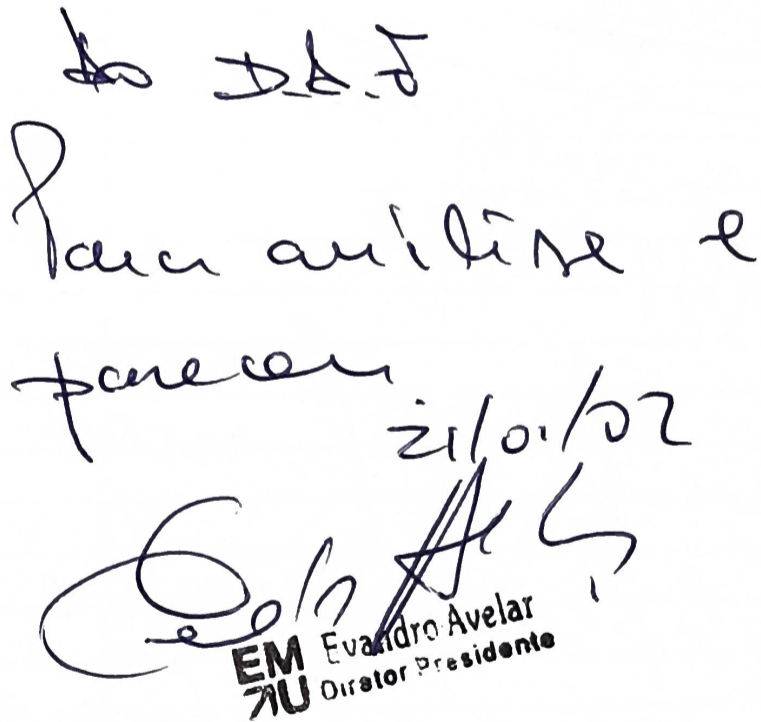 Ao D.A.J
Para análise e
parecer
21/01/02
EM Evandro Avelar
RU Diretor Presidente